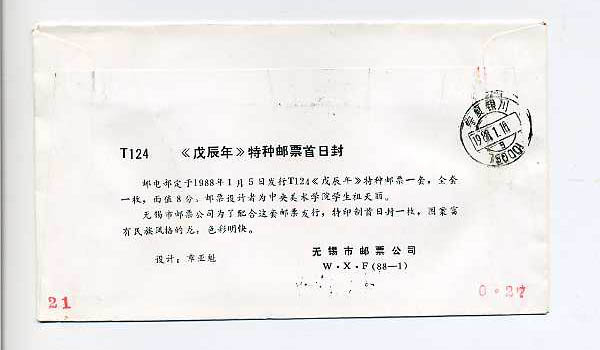 T124 《戊辰年》特种邮票首日封
邮电部定于1988年1月5日发行T124《戊辰年》特种邮票一套,全套
一枚,面值8分。邮票设计者为中央美术学院学生祖天丽。
无锡市邮票公司为了配合这套邮票发行,特印制首日封一枚,图案富
有民族风格的龙,色彩明快。
设计:章亚魁
无锡市邮票公司
W·X·F(88—1)
21
0·27
宁夏银川